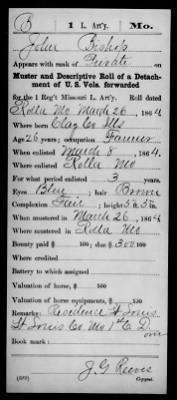 B | 1 L. Art'y. | Mo.
John Bishop
Appears with rank of Private
Muster and Descriptive Roll of a Detach-
ment of U. S. Vols. forwarded
for the 1 Reg't Missouri L. Art'y. Roll dated
Rolla Mo March 26, 1864
Where born Clay Co Ills
Age 26 years; occupation Farmer
When enlisted March 8, 1864
Where enlisted Rolla Mo
For what period enlisted 3 years.
Eyes Blue; hair Brown
Complexion Fair; height 5 ft. 5 in.
When mustered in March 26, 1864
Where mustered in Rolla Mo
Bounty paid $ 100; due $ 300 100
Where credited
Battery to which assigned
Valuation of horse, $ 100
Valuation of horse equipments, $ 100
Remarks: Residence St Louis
St Louis Co Mo 1st C. D.
over
Book mark:
J. G. Reeves
(339) Copyist.